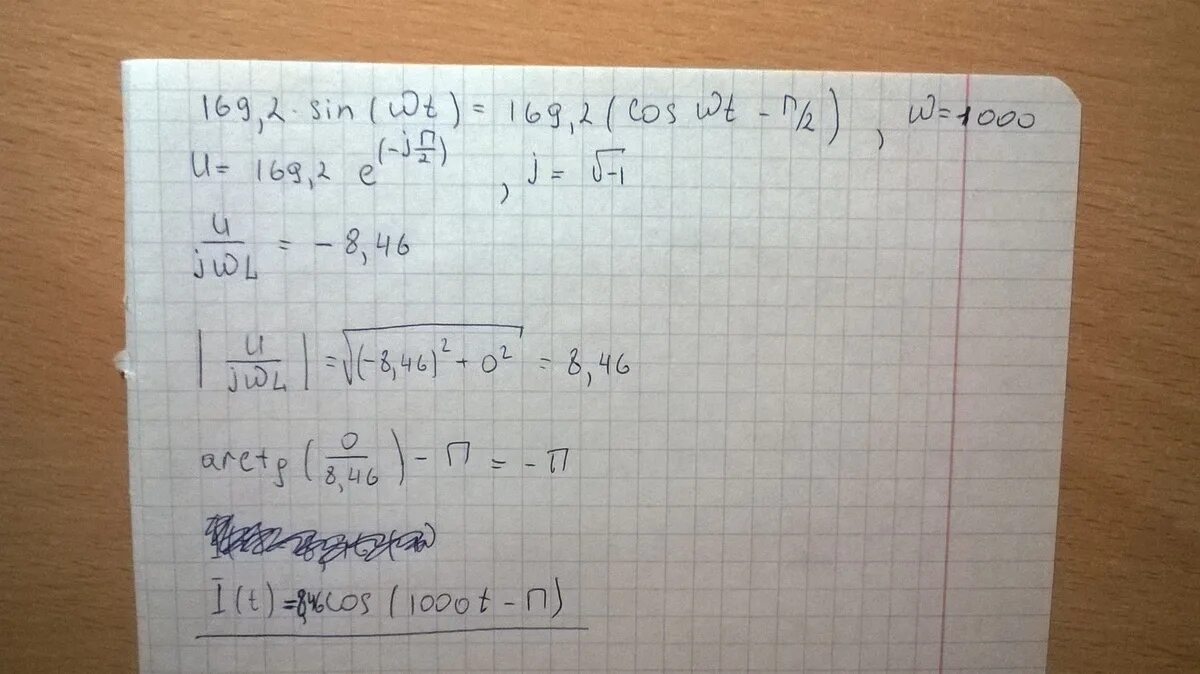 169,2 · sin(Wt) = 169,2(cos Wt - П/2), W=1000
U= 169,2 e^(-j П/2), j = √-1
U/jWL = - 8,46
|U/jWL| = √(-8,46)² + 0² = 8,46
arctg(0/8,46) - П = - П
I(t) = 8,46 cos(1000t - П)